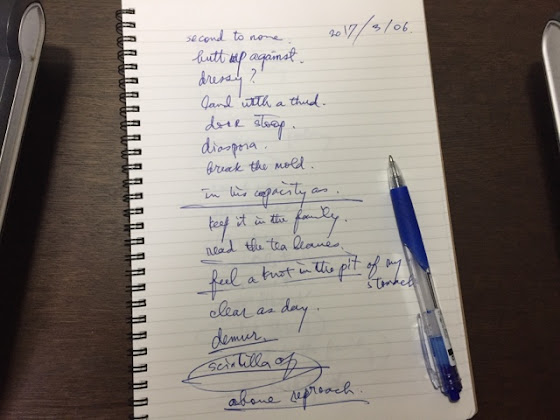 second to none. 2017/3/06.
butt up against.
dressy?
land with a thud.
door stop.
diaspora.
break the mold.
in his capacity as.
keep it in the family.
read the tea leaves.
feel a knot in the pit of my stomach
clear as day.
demur.
scintilla of
above reproach.